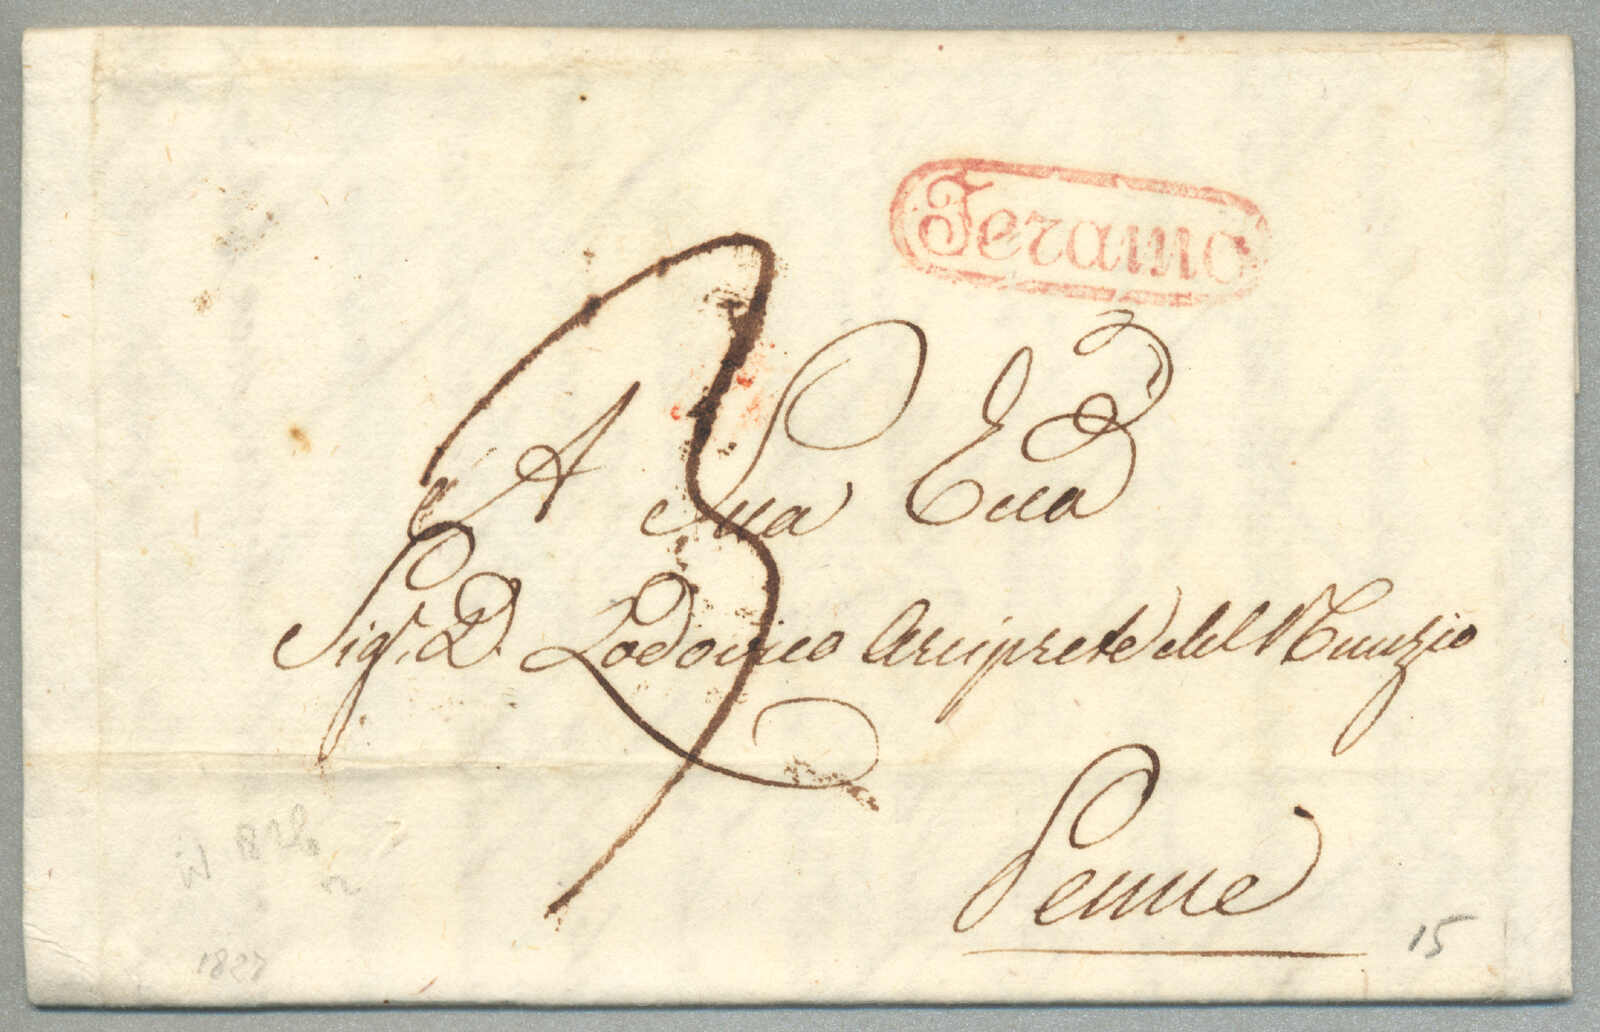 Teramo
3
A Sua Ecca
Sigr. D. Lodovico Arciprete del Nunzio
Penne
15
1827